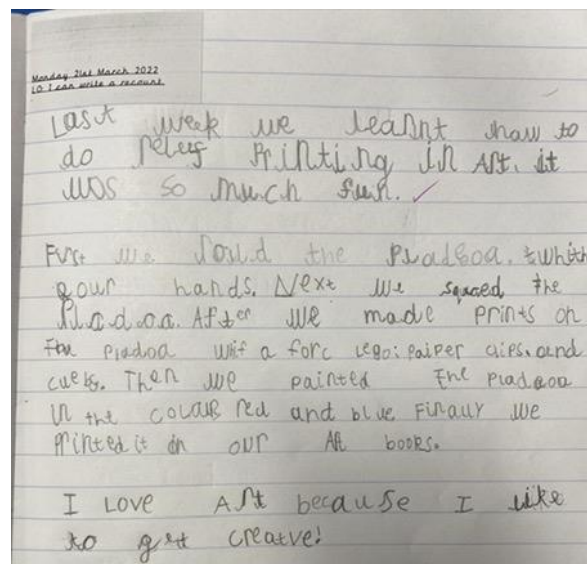 Monday 21st March 2022
LO: I can write a recount.
Last week we learnt how to
do releif Printing in Art. it
was so much fun.
First we the with
our hands. Next we squaed the
After we made prints on
the Pladoa wif a forc lego: paiper clips. and
Then we painted the Pladooa
in the colour red and blue Finally we
Printed it in our Art books.
I Love Art because I like
to get creatve!